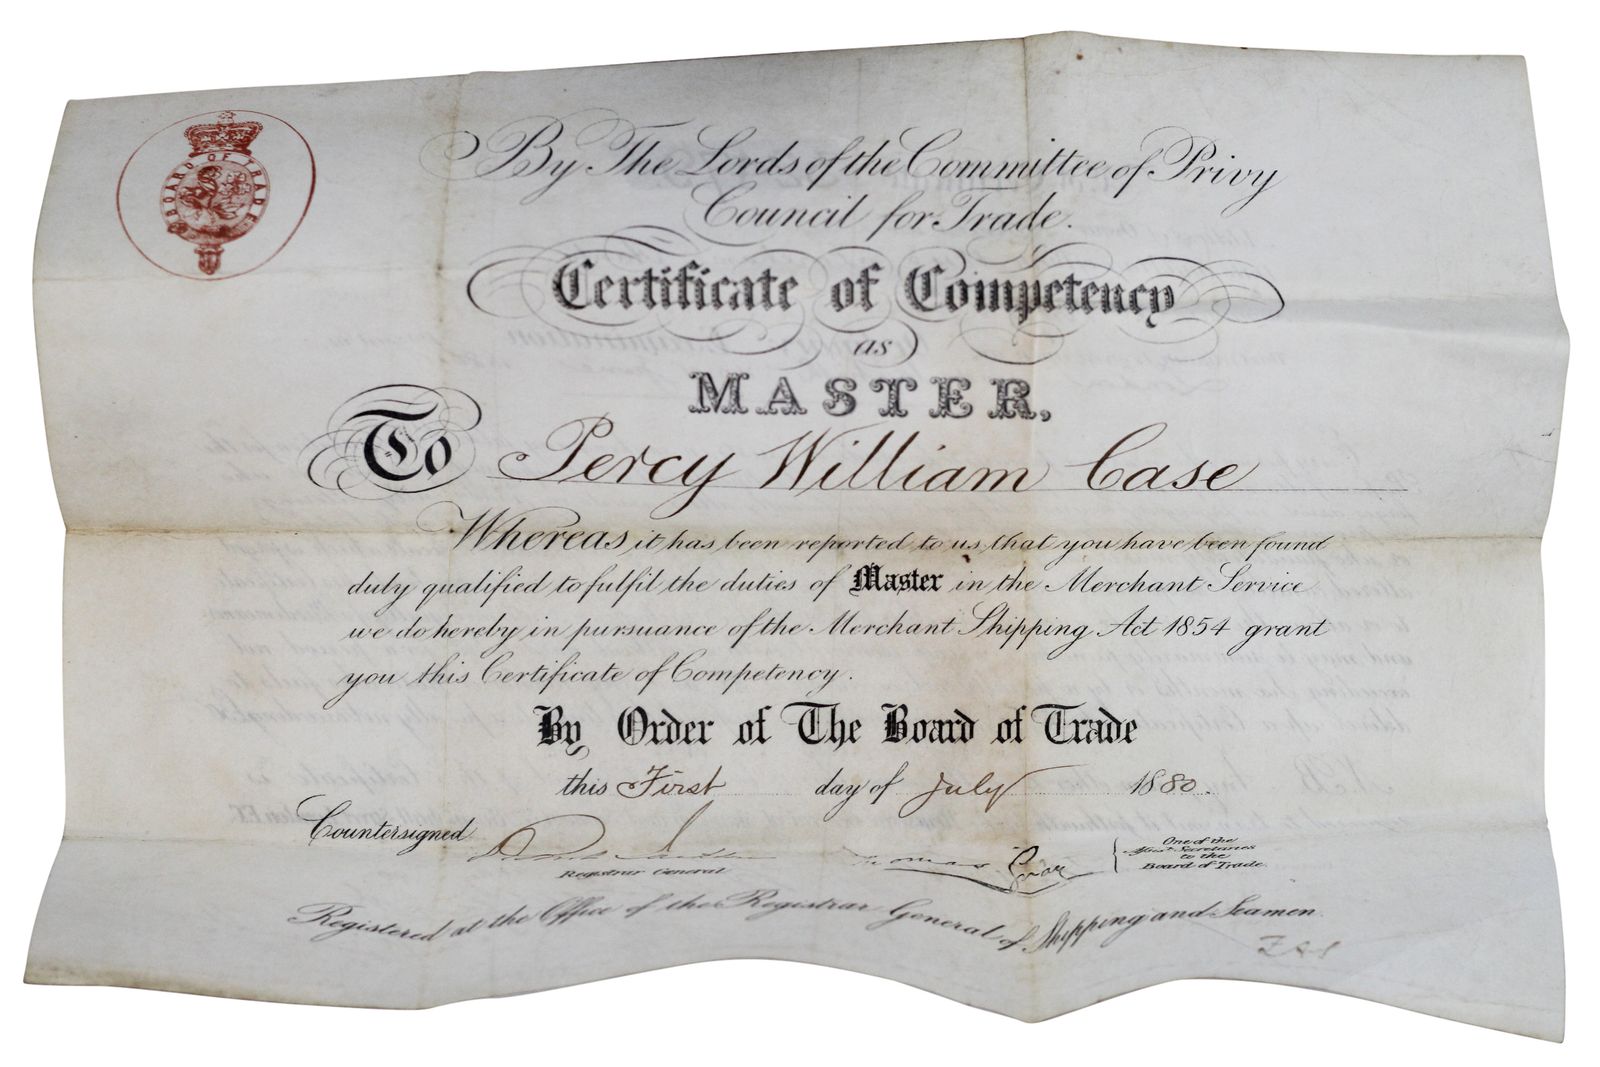 BOARD OF TRADE
By The Lords of the Committee of Privy
Council for Trade.
Certificate of Competency
as
MASTER,
To Percy William Case
Whereas it has been reported to us that you have been found
duly qualified to fulfil the duties of Master in the Merchant Service
we do hereby in pursuance of the Merchant Shipping Act 1854 grant
you this Certificate of Competency.
By Order of The Board of Trade
this First day of July 1880.
Countersigned
Registrar General
Thomas
One of the
Secretaries
to the
Board of Trade.
Registered at the Office of the Registrar General of Shipping and Seamen.